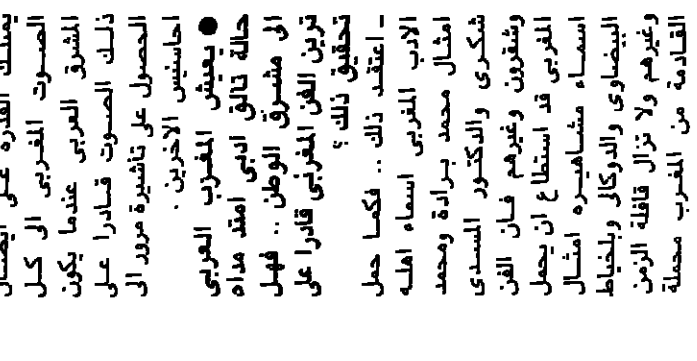 يمتلك القدره على ايصال
الصوت المغربي الى كل
المشرق العربي عندما يكون
ذلك الصوت قادرا على
الحصول على تأشيرة مرور الى
احاسيس الآخرين .
● يعيش المغرب العربي
حالة تألق ادبي امتد مداه
الى مشرق الوطن .. فهل
ترين الفن المغربي قادرا على
تحقيق ذلك ؟
ـ اعتقد ذلك .. فكما حمل
الادب المغربي اسماء اهله
امثال محمد برادة ومحمد
شكري والدكتور المسدي
وشقرون وغيرهم فان الفن
المغربي قد استطاع ان يحمل
اسماء مشاهيره امثال
البيضاوي والدوكالي وبلخياط
وغيرهم ولا تزال قافلة الزمن
القادمة من المغرب محملة